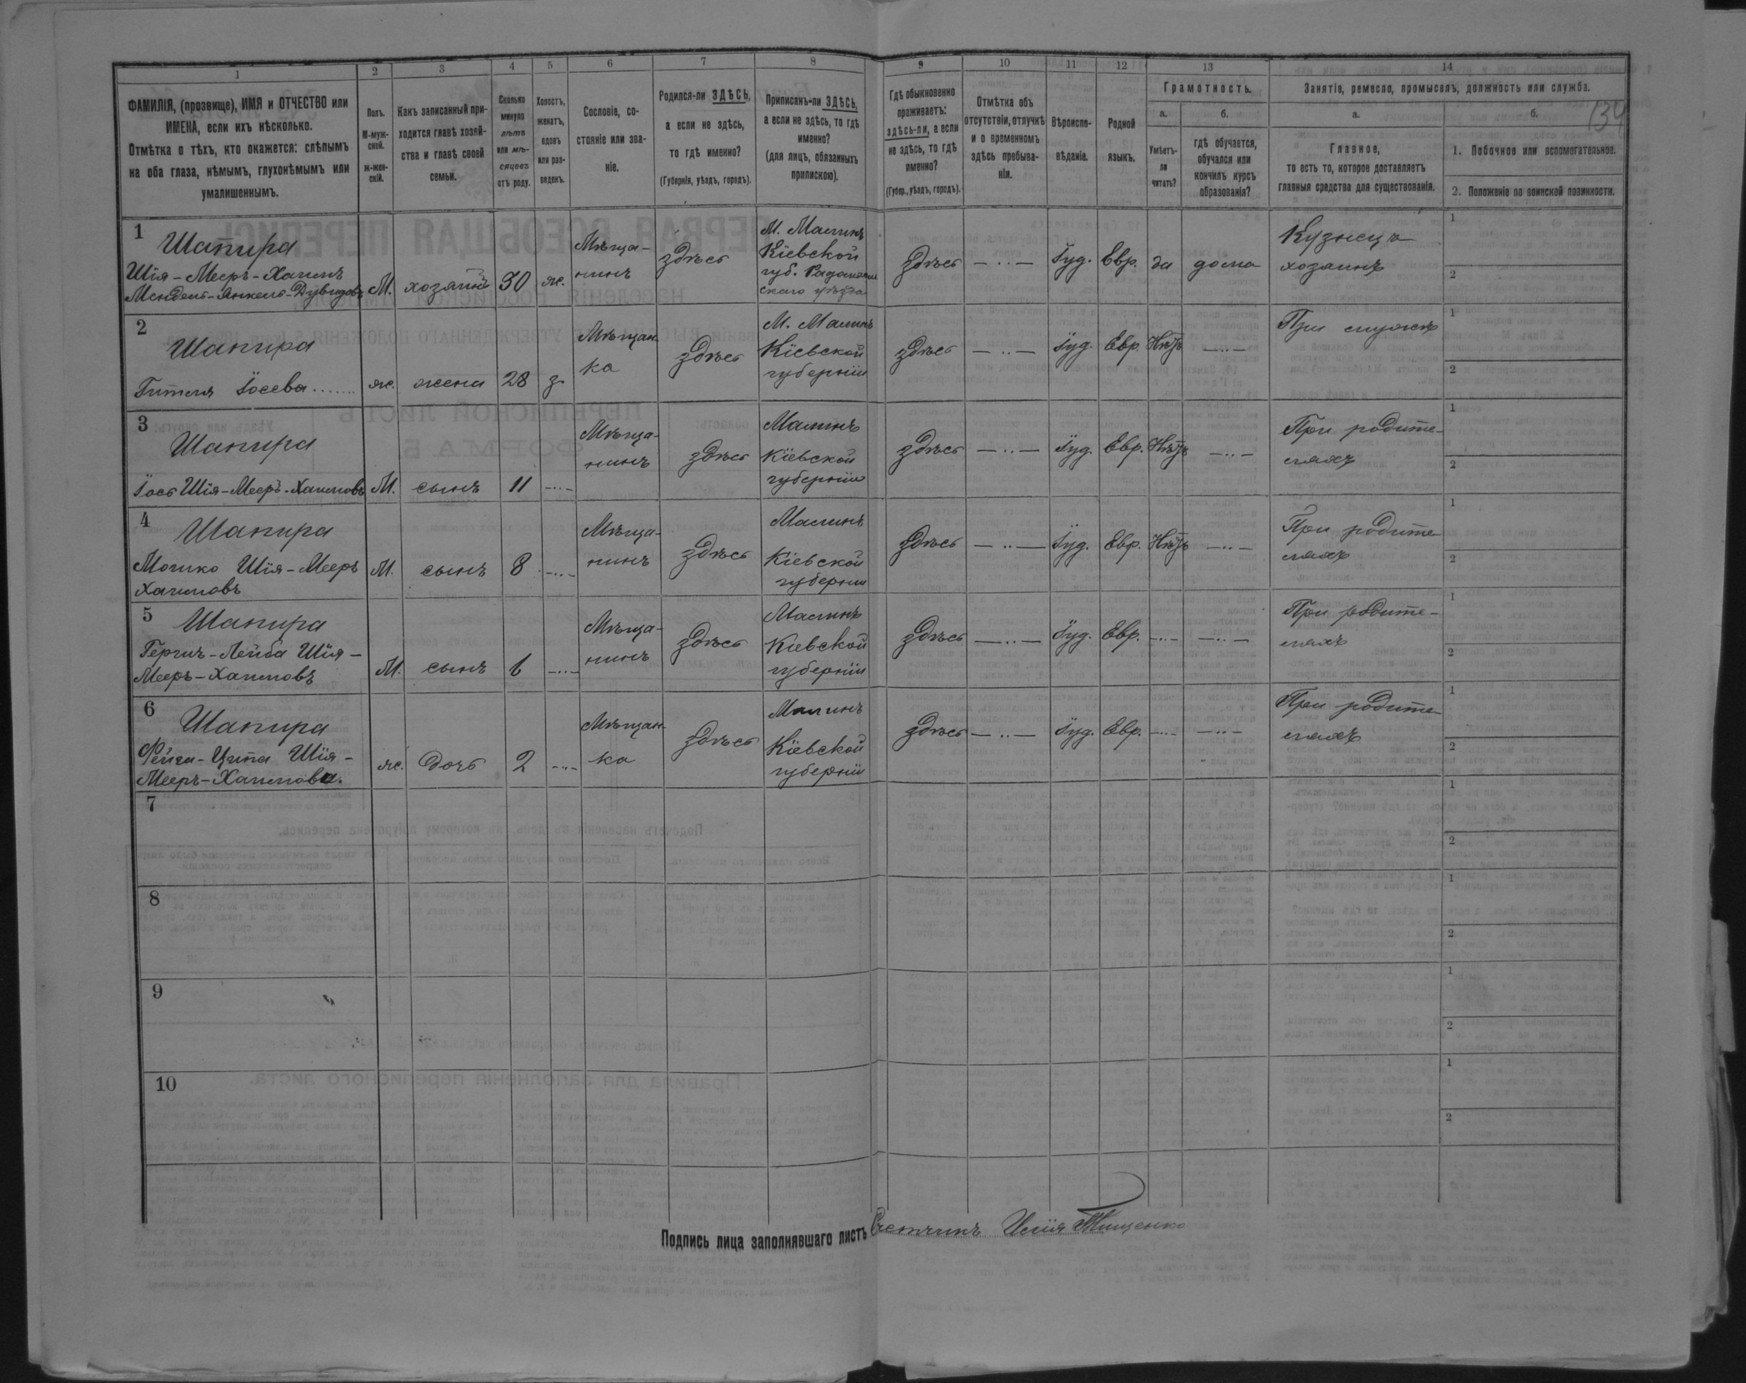 134
1 2 3 4 5 6 7 8 9 10 11 12 13 14
ФАМИЛІЯ, (прозвище), ИМЯ и ОТЧЕСТВО или
ИМЕНА, если ихъ нѣсколько.
Отмѣтка о тѣхъ, кто окажется: слѣпымъ
на оба глаза, нѣмымъ, глухонѣмымъ или
умалишеннымъ.
Полъ.
М-муж-
ской.
ж-жен-
скій.
Какъ записанный при-
ходится главѣ хозяй-
ства и главѣ своей
семьи.
Сколько
минуло
лѣтъ
или мѣ-
сяцевъ
отъ роду.
Холостъ,
женатъ,
вдовъ
или раз-
веденъ.
Сословіе, со-
стояніе или зва-
ніе.
Родился-ли ЗДѢСЬ,
а если не здѣсь,
то гдѣ именно?
(Губернія, уѣздъ, городъ).
Приписанъ-ли ЗДѢСЬ,
а если не здѣсь, то гдѣ
именно?
(для лицъ, обязанныхъ
припискою).
Гдѣ обыкновенно
проживаетъ:
здѣсь-ли, а если
не здѣсь, то гдѣ
именно?
(Губер., уѣздъ, городъ).
Отмѣтка объ
отсутствіи, отлучкѣ
и о временномъ
здѣсь пребыва-
ніи.
Вѣроиспо-
вѣданіе.
Родной
языкъ.
Грамотность.
а.
Умѣетъ-
ли
читать?
б.
гдѣ обучается,
обучался или
кончилъ курсъ
образованія?
Занятія, ремесло, промыселъ, должность или служба.
а.
Главное,
то есть то, которое доставляетъ
главныя средства для существованія.
б.
1. Побочное или вспомогательное.
2. Положеніе по воинской повинности.
1
Шапира
Шія-Мееръ-Хаимъ
Мендель-Янкель-Дувидовъ
М. хозяинъ 30 ж.
Мѣща-
нинъ
здѣсь
М. Малинъ
Кіевской
губ. Радомысль-
скаго уѣзда
здѣсь — .. — Іуд. Евр. да дома
Кузнецъ
хозяинъ
1
2
2
Шапира
Гитля Іосева
ж. жена 28 з.
Мѣщан-
ка
здѣсь
М. Малинъ
Кіевской
губерніи
здѣсь — .. — Іуд. Евр. Нѣтъ — .. —
При мужѣ
1
2
3
Шапира
Іось Шія-Мееръ-Хаимовъ
М. сынъ 11 — .. —
Мѣща-
нинъ
здѣсь
Малинъ
Кіевской
губерніи
здѣсь — .. — Іуд. Евр. Нѣтъ — .. —
При родите-
ляхъ
1
2
4
Шапира
Мошко Шія-Мееръ
Хаимовъ
М. сынъ 8 — .. —
Мѣща-
нинъ
здѣсь
Малинъ
Кіевской
губерніи
здѣсь — .. — Іуд. Евр. Нѣтъ — .. —
При родите-
ляхъ
1
2
5
Шапира
Гершъ-Лейба Шія-
Мееръ-Хаимовъ
М. сынъ 6 — .. —
Мѣща-
нинъ
здѣсь
Малинъ
Кіевской
губерніи
здѣсь — .. — Іуд. Евр. — .. — — .. —
При родите-
ляхъ
1
2
6
Шапира
Фейга-Ципа Шія-
Мееръ-Хаимова.
ж. дочь 2 — .. —
Мѣщан-
ка
здѣсь
Малинъ
Кіевской
губерніи
здѣсь — .. — Іуд. Евр. — .. — — .. —
При родите-
ляхъ
1
2
7
1
2
8
1
2
9
1
2
10
1
2
Подпись лица заполнявшаго листъ Счетчикъ Илія Тищенко